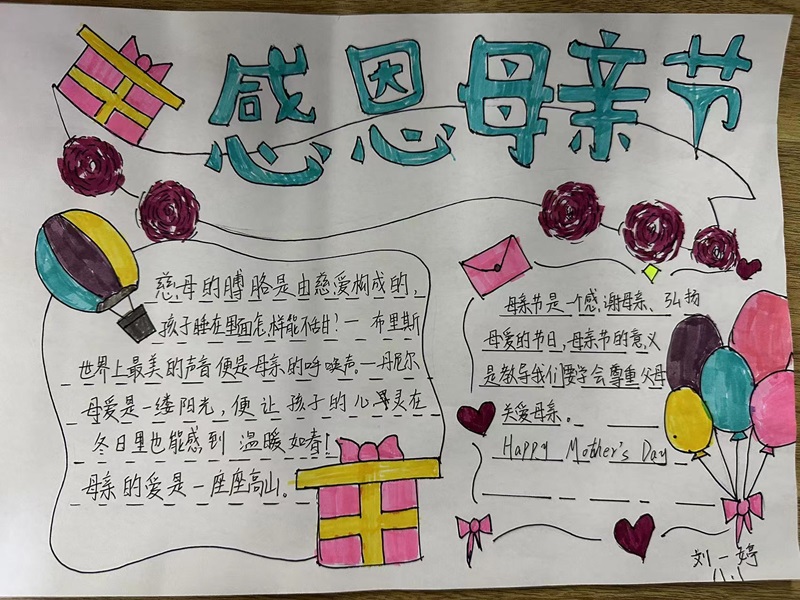 感恩母亲节
慈母的膊胳是由慈爱构成的,
孩子睡在里面怎样能不恬甜?一 布里斯
世界上最美的声音便是母亲的呼唤声。一丹尼尔
母爱是一缕阳光,便让孩子的心灵在
冬日里也能感到温暖如春!
母亲的爱是一座座高山。
母亲节是一个感谢母亲、弘扬
母爱的节日,母亲节的意义
是教导我们要学会尊重父母
关爱母亲。
Happy Mother's Day
刘一婷